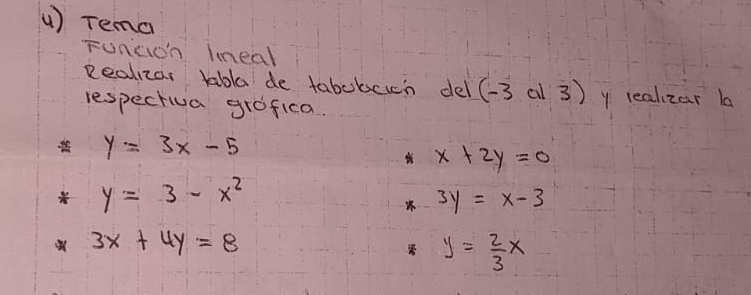 4) Tema
Función lineal
Realizar tabla de tabulación del (-3 al 3) y realizar la
respectiva gráfica.
* y = 3x - 5
* y = 3 - x²
* 3x + 4y = 8
* x + 2y = 0
* 3y = x - 3
* y = 2/3 x